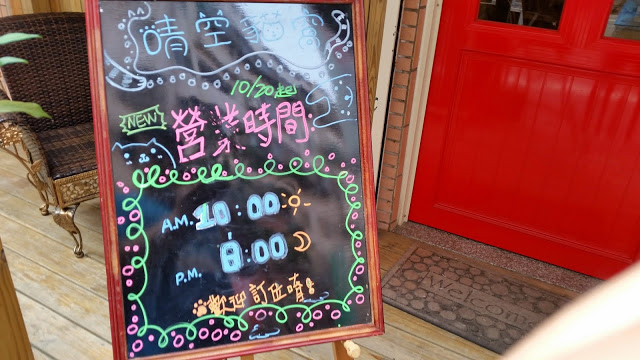 晴空貓窩
10/20起
NEW
營業時間
A.M. 10:00
P.M. 8:00
歡迎訂位唷!